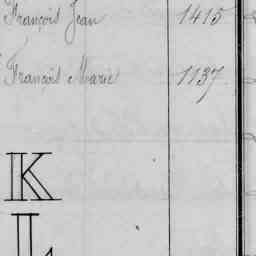 François Jean 1415
François Marie 1137
K
L